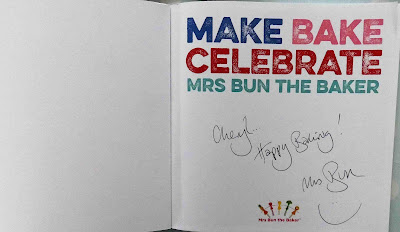 MAKE BAKE
CELEBRATE
MRS BUN THE BAKER
Cheryl..
Happy Baking!
Mrs Bun
Mrs Bun the Baker